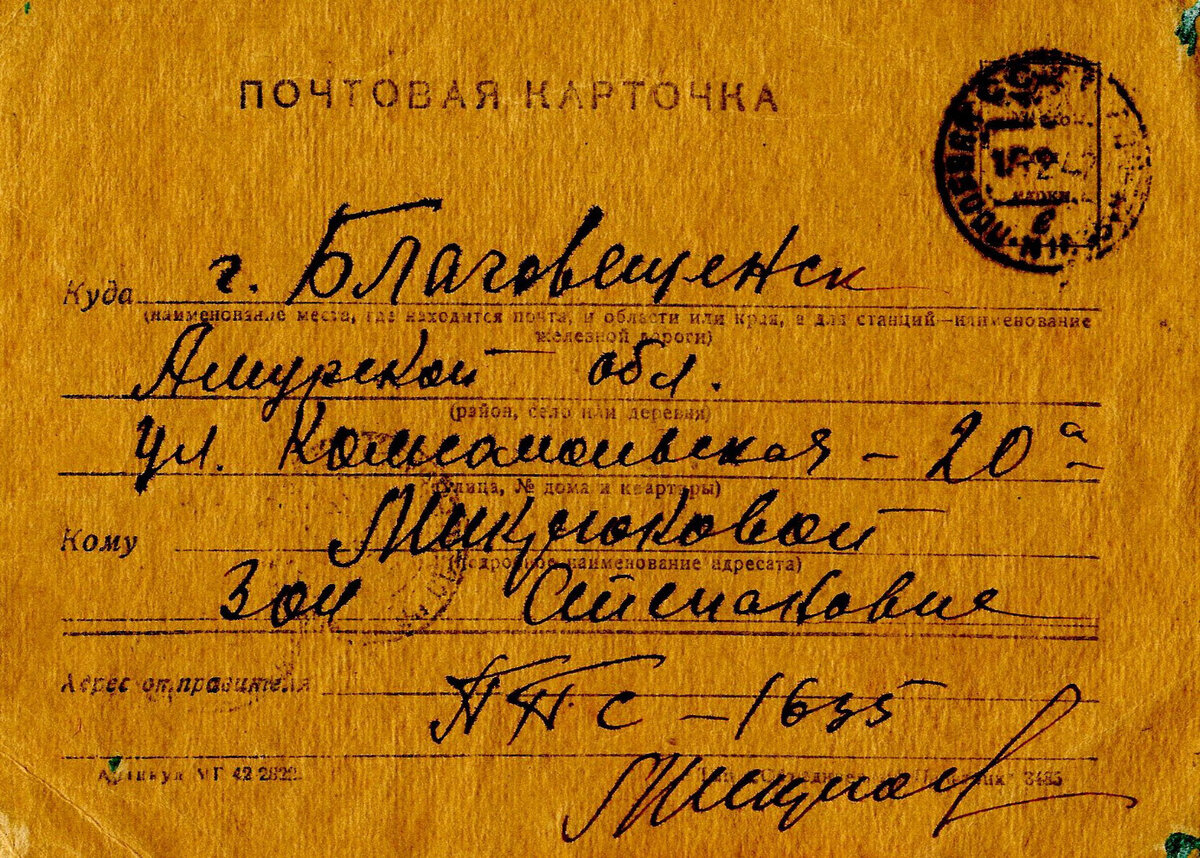 ПОЧТОВАЯ КАРТОЧКА
Куда г. Благовещенск
(наименование места, где находится почта, и области или края, а для станций—наименование
железной дороги)
Амурской обл.
(район, село или деревня)
ул. Комсомольская – 20а
(улица, № дома и квартиры)
Кому Микрюковой
(подробное наименование адресата)
Зои Степановне
Адрес отправителя ППС – 1635
Артикул МГ 42-2822.
3485